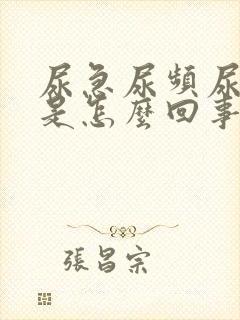 尿急尿頻尿
是怎麼回事
張昌宗